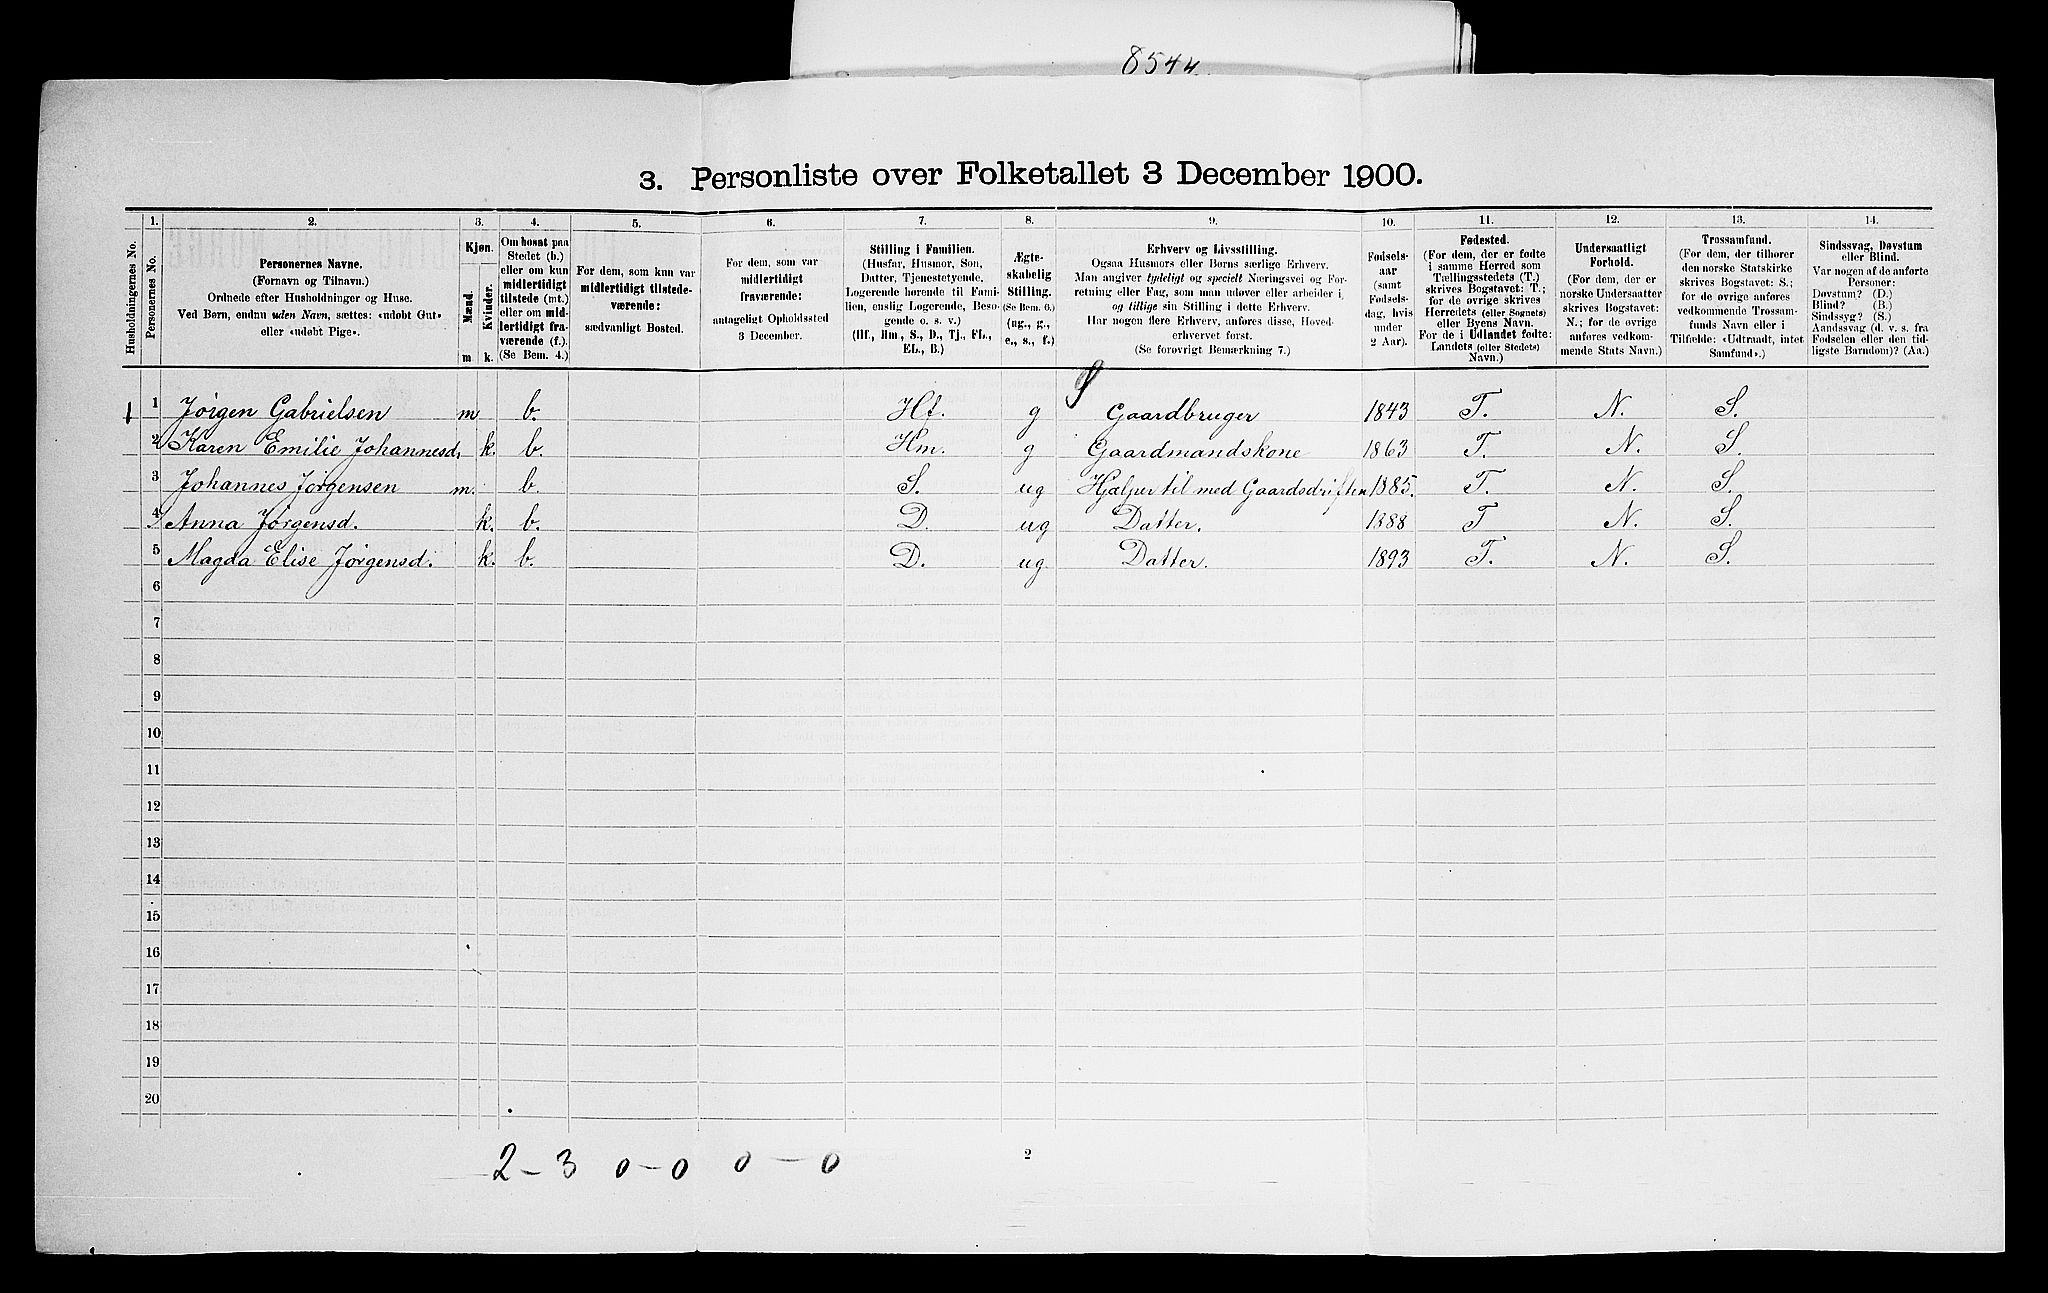 8544
3. Personliste over Folketallet 3 December 1900.
1. 2. 3. 4. 5. 6. 7. 8. 9. 10. 11. 12. 13. 14.
Husholdningernes No.
Personernes No.
Personernes Navne.
(Fornavn og Tilnavn.)
Ordnede efter Husholdninger og Huse.
Ved Børn, endnu uden Navn, sættes: «udøbt Gut»
eller «udøbt Pige».
Kjøn.
Mænd.
Kvinder.
m k.
Om bosat paa
Stedet (b.)
eller om kun
midlertidigt
tilstede (mt.)
eller om mid-
lertidigt fra-
værende (f.)
(Se Bem. 4.)
For dem, som kun var
midlertidigt tilstede-
værende:
sædvanligt Bosted.
For dem, som var
midlertidigt
fraværende:
antageligt Opholdssted
3 December.
Stilling i Familien.
(Husfar, Husmor, Søn,
Datter, Tjenestetyende,
Logerende hørende til Fami-
lien, enslig Logerende, Besø-
gende o. s. v.)
(Hf., Hm., S., D., Tj., FL.,
EL., B.)
Ægte-
skabelig
Stilling.
(Se Bem. 6.)
(ug., g.,
e., s., f.)
Erhverv og Livsstilling.
Ogsaa Husmors eller Børns særlige Erhverv.
Man angiver tydeligt og specielt Næringsvei og For-
retning eller Fag, som man udøver eller arbeider i,
og tillige sin Stilling i dette Erhverv.
Har nogen flere Erhverv, anføres disse, Hoved-
erhvervet først.
(Se forøvrigt Bemærkning 7.)
Fødsels-
aar
(samt
Fødsels-
dag, hvis
under
2 Aar).
Fødested.
(For dem, der er fødte
i samme Herred som
Tællingsstedets (T.)
skrives Bogstavet: T.;
for de øvrige skrives
Herredets (eller Sognets)
eller Byens Navn.
For de i Udlandet fødte:
Landets (eller Stedets)
Navn.)
Undersaatligt
Forhold.
(For dem, der er
norske Undersaatter
skrives Bogstavet:
N.; for de øvrige
anføres vedkom-
mende Stats Navn.)
Trossamfund.
(For dem, der tilhører
den norske Statskirke
skrives Bogstavet: S.;
for de øvrige anføres
vedkommende Trossam-
funds Navn eller i
Tilfælde: «Udtraadt, intet
Samfund».)
Sindssvag, Døvstum
eller Blind.
Var nogen af de anførte
Personer:
Døvstum? (D.)
Blind? (B.)
Sindssyg? (S.)
Aandssvag (d. v. s. fra
Fødselen eller den tid-
ligste Barndom)? (Aa.)
1 1 Jørgen Gabrielsen m b. Hf. g Gaardbruger 1843 T. N. S.
2 Karen Emilie Johannesd. k. b. Hm. g Gaardmandskone 1863 T. N. S.
3 Johannes Jørgensen m. b. S. ug Hjælper til med Gaardsdriften 1885. T. N. S.
4 Anna Jørgensd. k. b. D. ug Datter. 1888 T N. S.
5 Magda Elise Jørgensd. k. b. D. ug. Datter. 1893 T. N. S.
6
7
8
9
10
11
12
13
14
15
16
17
18
19
20
2-3 0-0 0-0
2